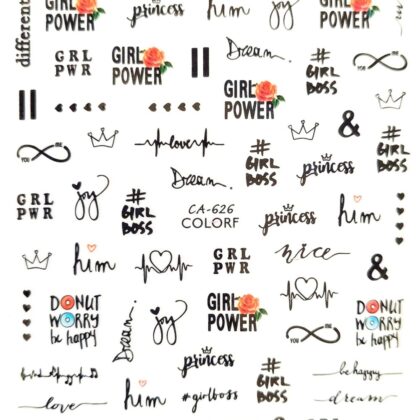 different
GIRL
POWER
princess
him
joy
GIRL
POWER
GRL
PWR
GIRL
POWER
Dream.
#
GIRL
BOSS
YOU
ME
GIRL
POWER
&
YOU
ME
love
#
GIRL
BOSS
princess
#
GIRL
BOSS
Dream.
GRL
PWR
joy
#
GIRL
BOSS
CA-626
COLORF
princess
him
him
GRL
PWR
nice
&
DONUT
WORRY
be happy
Dream.
joy
GIRL
POWER
YOU
ME
DONUT
WORRY
be happy
princess
#
GIRL
BOSS
be happy
love
him
#girlboss
dream